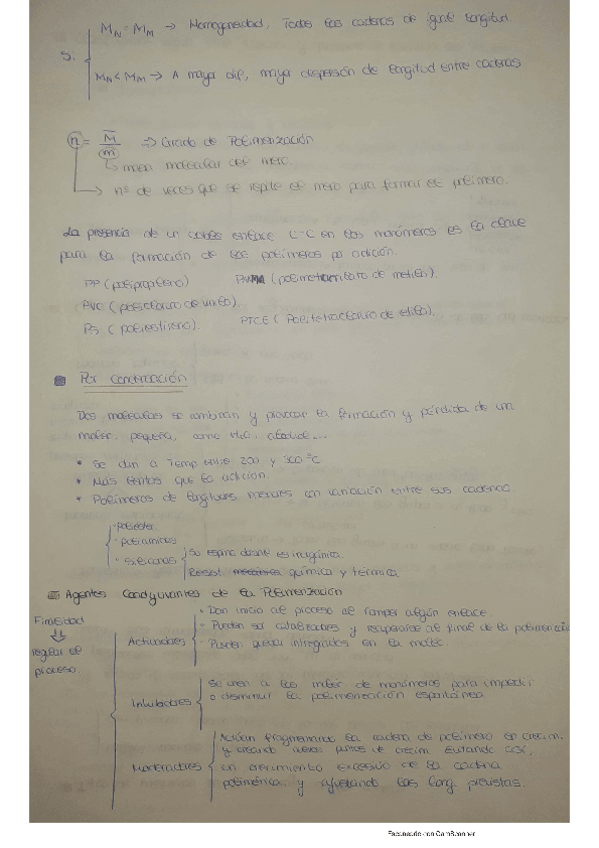 Si
M_N = M_M → Homogeneidad, Todas las cadenas de igual longitud.
M_N < M_M → A mayor dif, mayor dispersión de longitud entre cadenas
n = M̄ / m => Grado de Polimerización
masa molecular del mero.
nº de veces que se repite el mero para formar el polímero.
La presencia de un doble enlace C-C en los monómeros es la clave
para la formación de los polímeros por adición.
PP (polipropileno)
PVC (policloruro de vinilo).
PS (poliestireno).
PTCE
Por condensación
Dos moléculas se combinan y provocan la formación y pérdida de una
molec. pequeña, como H₂O, alcohol...
• Se dan a Temp entre 200 y 300 ºC
• Más lentos que la adición.
• Polímeros de longitudes menores con variación entre sus cadenas.
- Poliester.
- poliamidas
- siliconas
Su espina dorsal es inorgánica
Resist. química y térmica
Agentes Coadyuvantes de la Polimerización
Finalidad
regular el
proceso.
Activadores
- Dan inicio al proceso al romper algún enlace.
- Pueden ser catalizadores y recuperarse al final de la polimerización
- Pueden quedar integrados en la molec.
Inhibidores
Se unen a las molec de monómeros para impedir
o disminuir la polimerización espontánea.
Moderadores
Actúan fragmentando la cadena de polímero en crecim.
y creando nuevos puntos de crecim. Evitando así,
un crecimiento excesivo de la cadena
polimérica y ajustando las long. previstas.
Escaneado con CamScanner